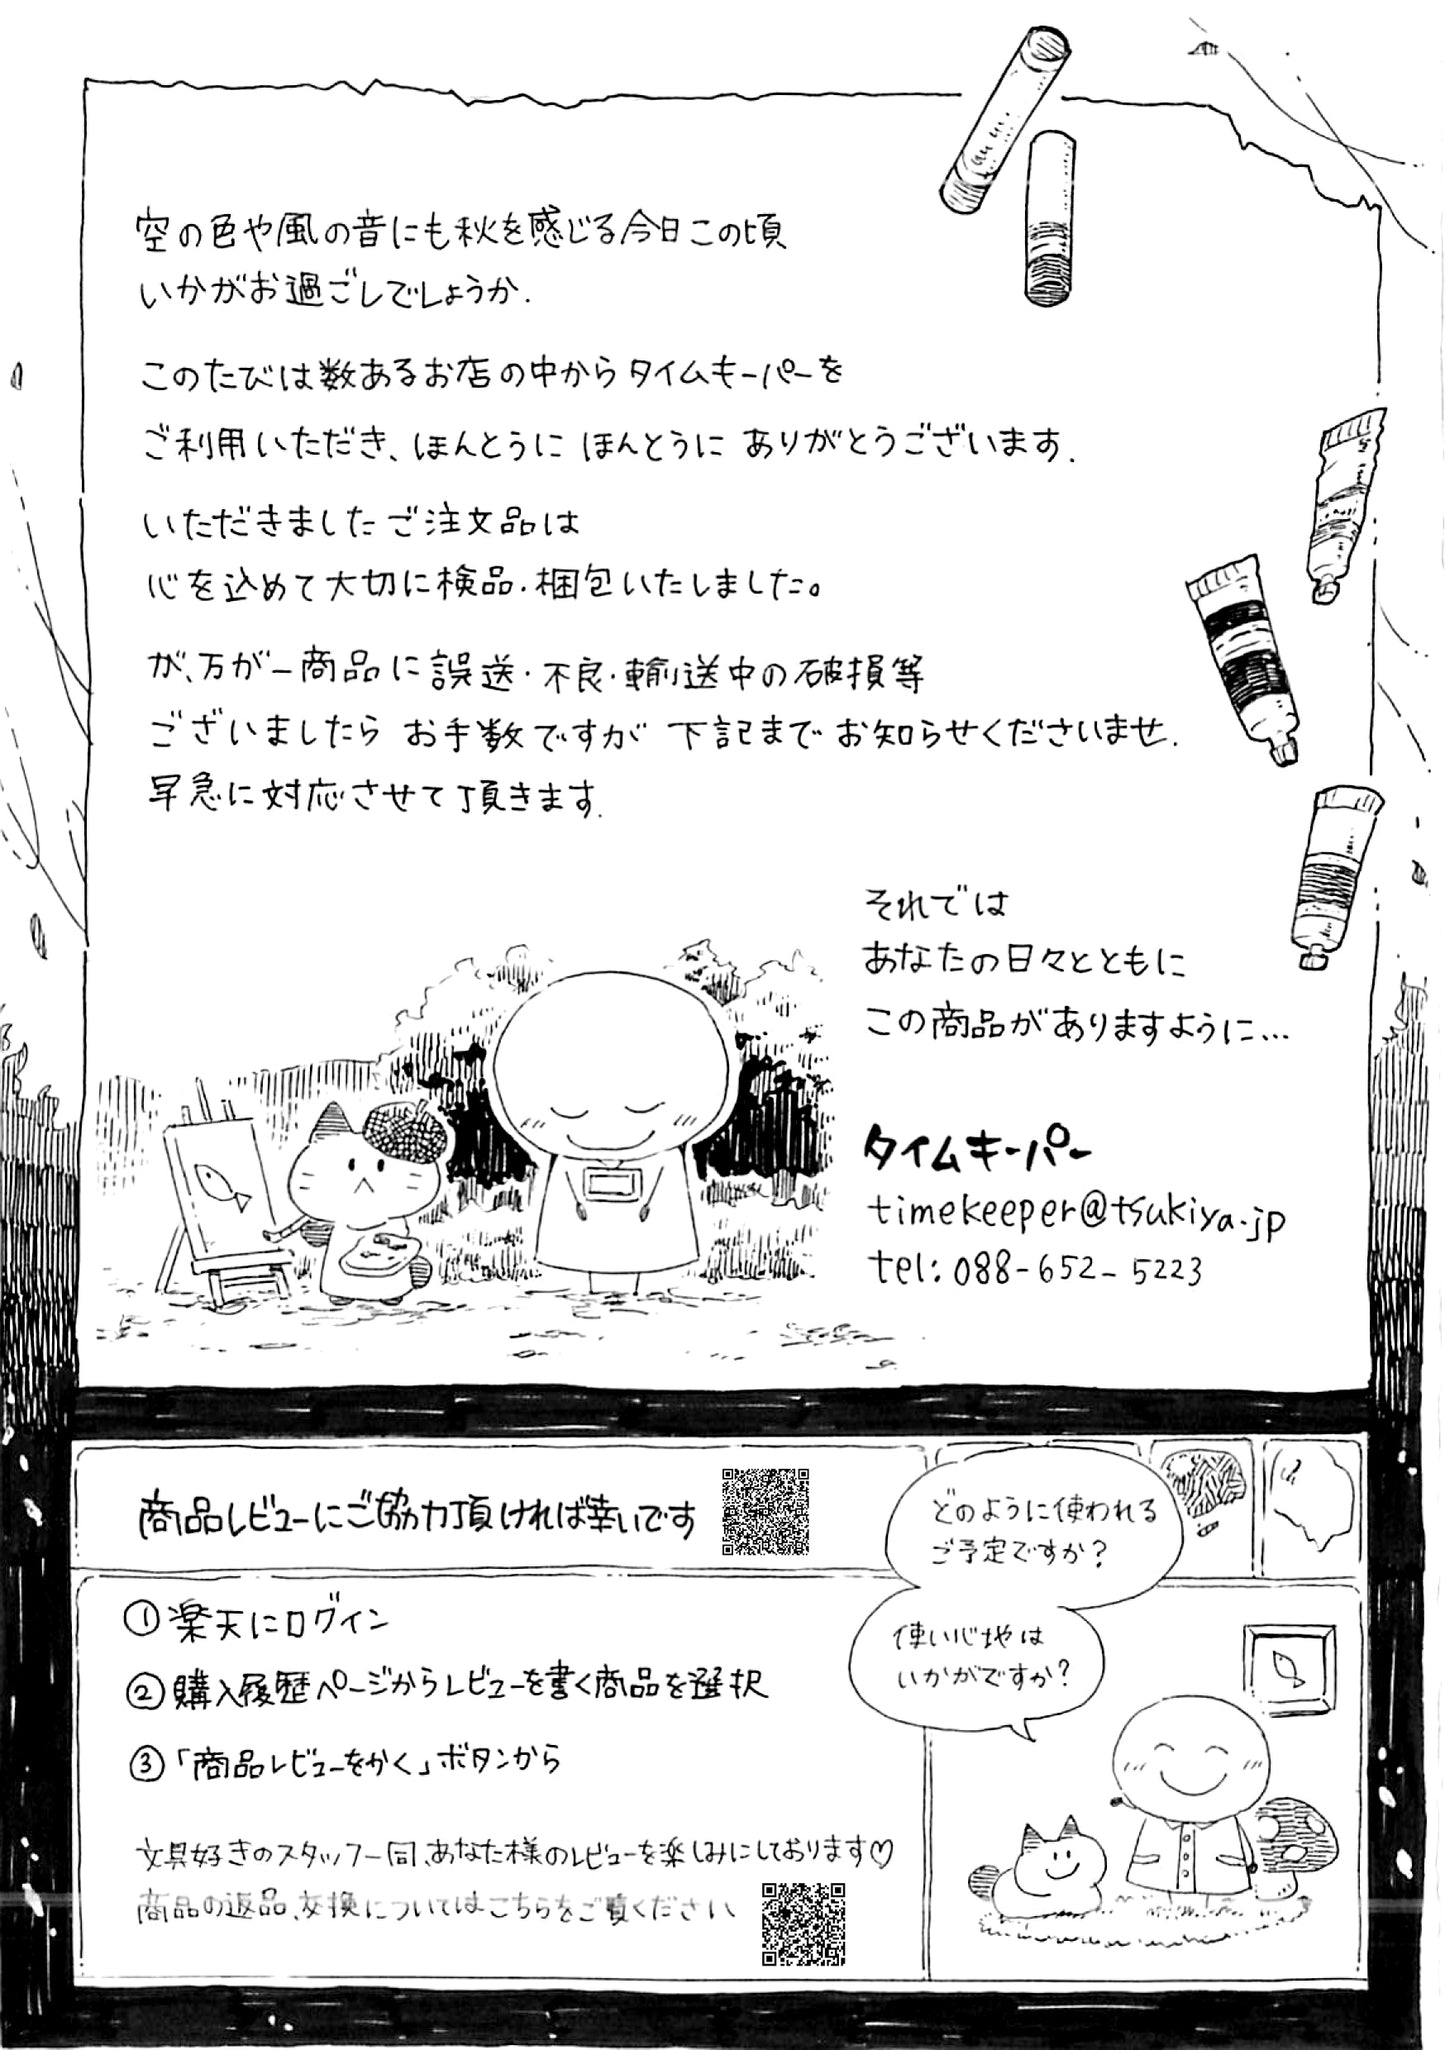 空の色や風の音にも秋を感じる今日この頃
いかがお過ごしでしょうか.
このたびは数あるお店の中からタイムキーパーを
ご利用いただき、ほんとうに ほんとうに ありがとうございます.
いただきましたご注文品は
心を込めて大切に検品・梱包いたしました。
が、万が一商品に誤送・不良・輸送中の破損等
ございましたら お手数ですが 下記まで お知らせくださいませ.
早急に対応させて頂きます.
それでは
あなたの日々とともに
この商品がありますように…
タイムキーパー
timekeeper@tsukiya.jp
tel: 088-652-5223
商品レビューにご協力頂ければ幸いです
どのように使われる
ご予定ですか?
使い心地は
いかがですか?
①楽天にログイン
②購入履歴ページからレビューを書く商品を選択
③「商品レビューをかく」ボタンから
文具好きのスタッフ一同、あなた様のレビューを楽しみにしております♡
商品の返品、交換についてはこちらをご覧ください